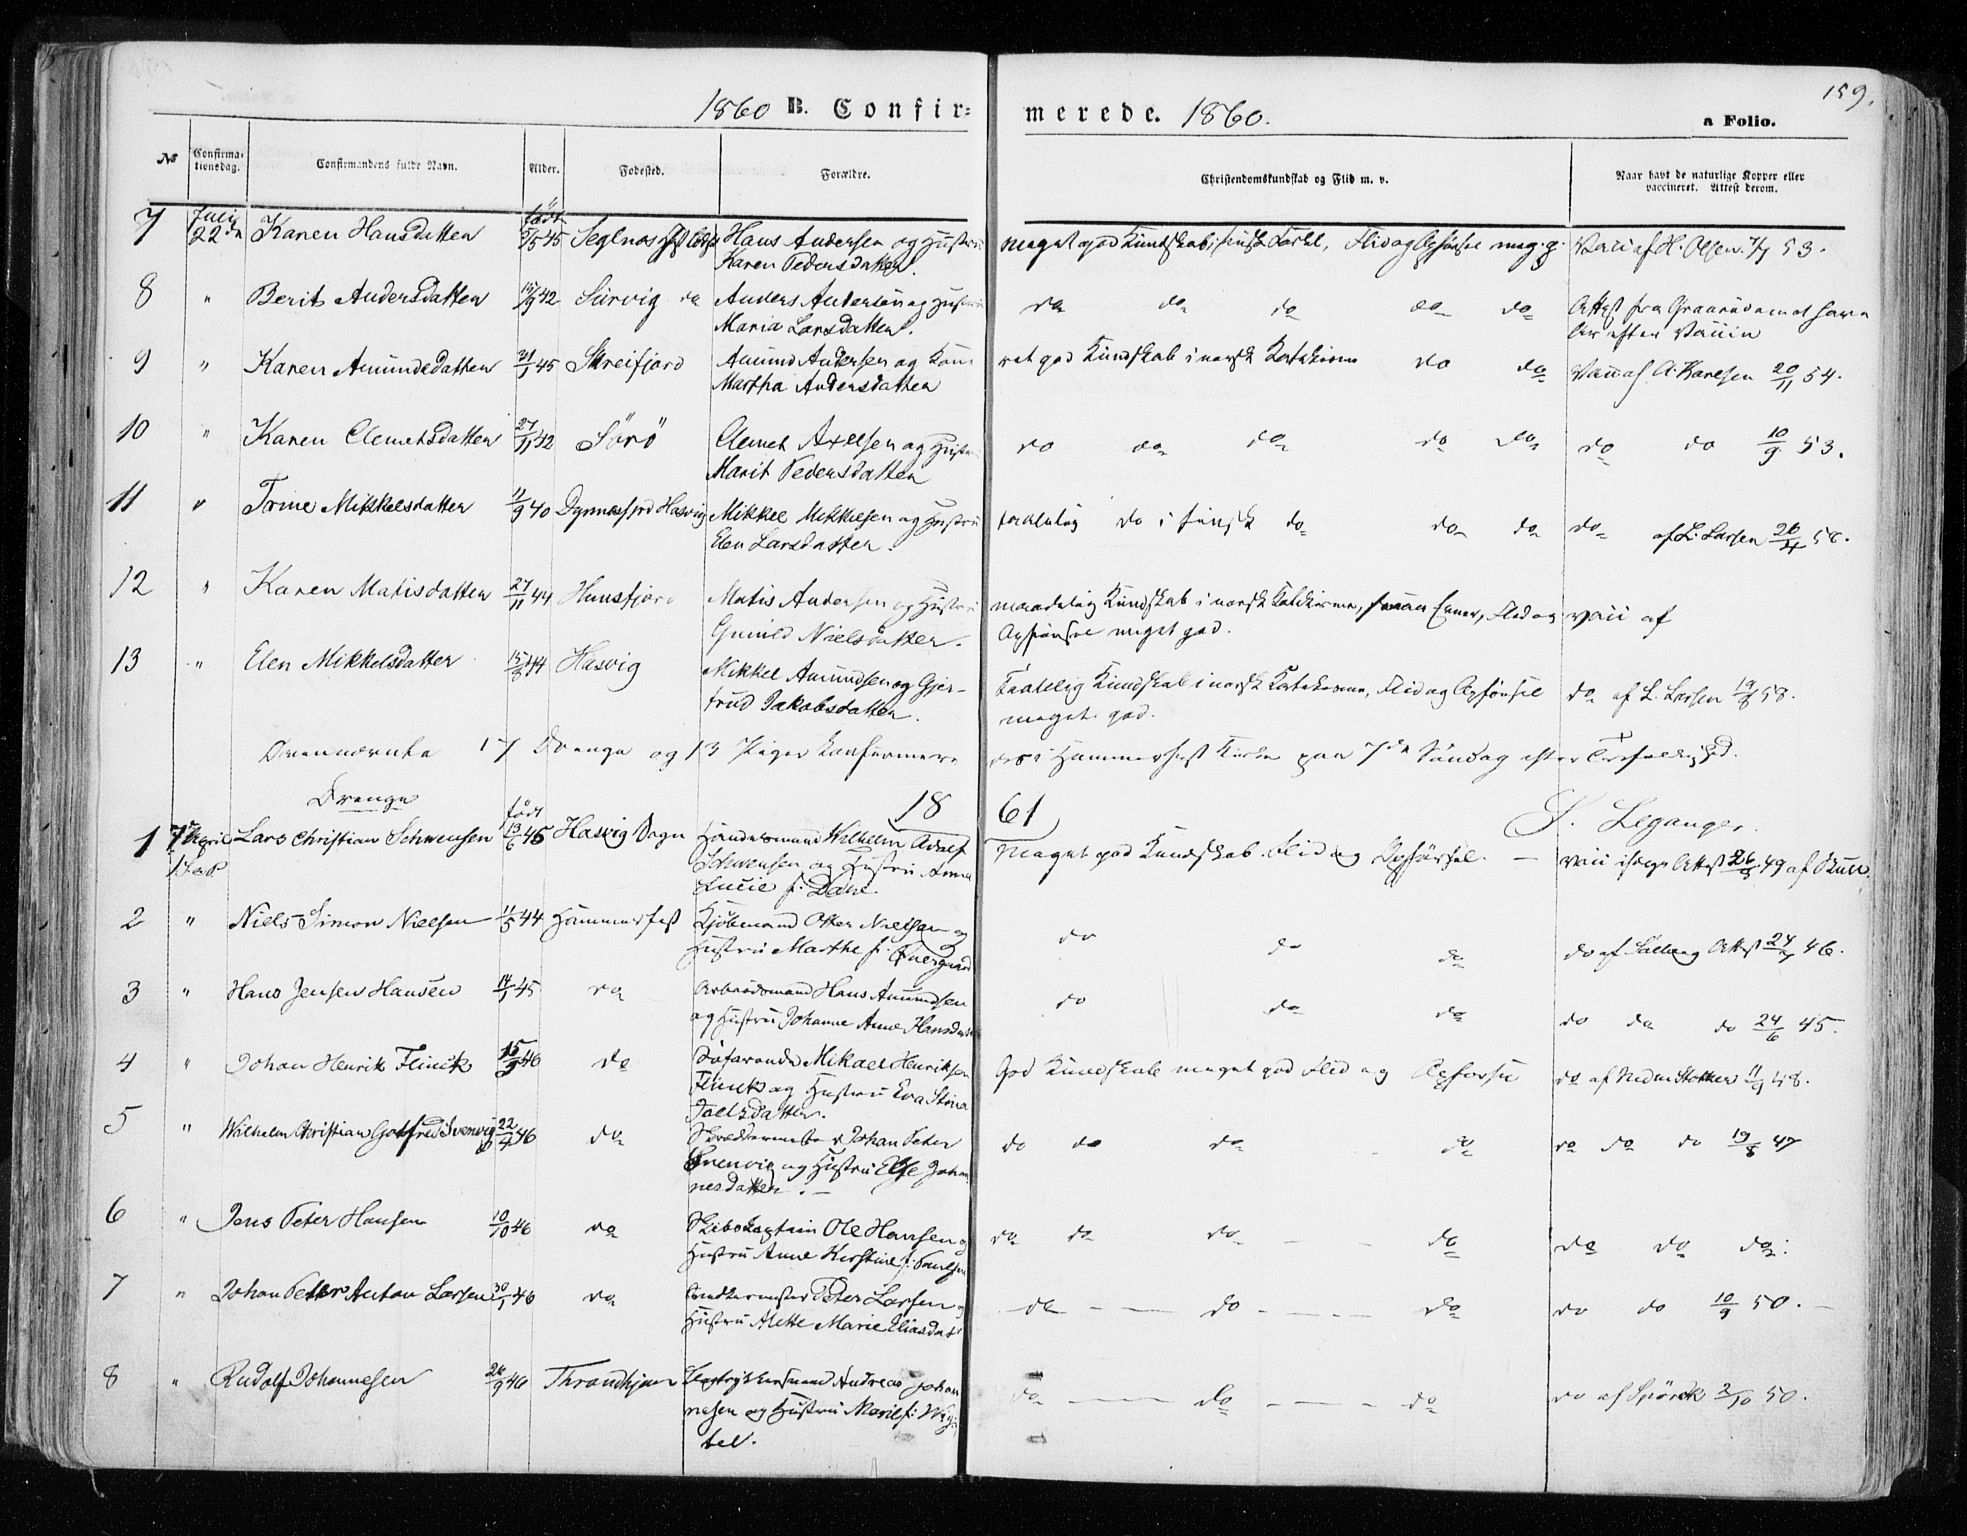 159.
1860 B. Confirmerede. 1860.
a Folio.
No Confirmationsdag. Confirmandens fulde Navn. Alder. Fodested. Forældre. Christendomskundskab og Flid m. v. Naar havt de naturlige Kopper eller vaccineret. Attest derom.
7 Juli 22de Karen Hansdatter født 5/5 45 Seglnæs Hans Andersen og Hustru meget god Kundskab i finsk Flid og Opførsel meg. g. Vacc af H. Olsen 53.
Karen Pedersdatter.
8 " Berit Andersdatter 15/9 42 Sørvig do Anders Andersen og Hustru do do do do do Attest fra
Maria Larsdatter. efter Vaccin
9 " Karen Amundsdatter 21/1 45 Skreifjord Amund Andersen og Kone ret god Kundskab i norsk Katekisme do do Vacc af A. Karlsen 20/11 54.
Martha Andersdatter
10 " Karen Clemetsdatter 27/11 42 Sørø Clemet Axelsen og Hustru do do do do do do do 10/9 53.
Marit Pedersdatter
11 " Trine Mikkelsdatter 11/9 40 Dynnesfjord Hasvig Mikkel Mikkelsen og Hustru taalelig do i finsk do do do do af L. Larsen 26/4 58.
Elen Larsdatter.
12 " Karen Matisdatter 27/11 44 Hansfjord Matis Andersen og Hustru maadelig Kundskab i norsk Katekisme, Evner, Flid og vacc af
Gunild Nielsdatter. Opførsel meget god.
13 " Elen Mikkelsdatter 15/3 44 Hasvig Mikkel Amundsen og Gjer- Taalelig Kundskab i norsk Katekisme, Flid og Opførsel do af L. Larsen 19/8 58.
trud Jakobsdatter. meget god.
Ovennævnte 17 Drenge og 13 Piger confirmere- des i Hammerfest Kirke paa 7de Søndag efter Trefoldighed.
Drenge 1861 S. Leganger.
1 7de April Lars Christian Schwensen født 13/6 46 Hasvig Sogn Handelsmand Wilhelm Adolf Meget god Kundskab. Flid og Opførsel. — vacc ifølge Attest 26/8 49 af
1ste Schwensen og Hustru Anna
Lucie f. Dahl
2 " Niels Simon Nielsen 11/5 44 Hammerfest Kjøbmand Otter Nielsen og do do do do af Attest 24/7 46.
Hustru Marthe f.
3 " Hans Jensen Hansen 14/1 45 do Arbeidsmand Hans Amundsen do do do do do do 24/6 45.
og Hustru Johanne Anne Hansdatter
4 " Johan Henrik Flinck 15/9 46 do Søfarende Mikael Henriksen God Kundskab meget god Flid og Opførsel do af Stokker 11/9 48.
Flinck og Hustru Eva Stina
Joelsdatter.
5 " Wilhelm Christian Gotfred Svenvig 22/4 46 do Skreddermester Johan Peter do do do do do do do 19/8 47
Svenvig og Hustru Else Johan-
nesdatter. —
6 " Jens Peter Hansen 10/10 46 do Skibskaptein Ole Hansen og do do do — — do do do do.
Hustru Anne Kirstine f. Poulsen
7 " Johan Petter Anton Larsen 30/1 46 do Peter Larsen og do — — do — — — do do do 10/9 50. —
Hustru Alette Marie Eliasdat
8 " Rudolf Johannesen 26/9 46 Throndhjem Andreas Johan- do — — do — — — do do af Spørck 2/10 50.
nesen og Hustru Maril f.